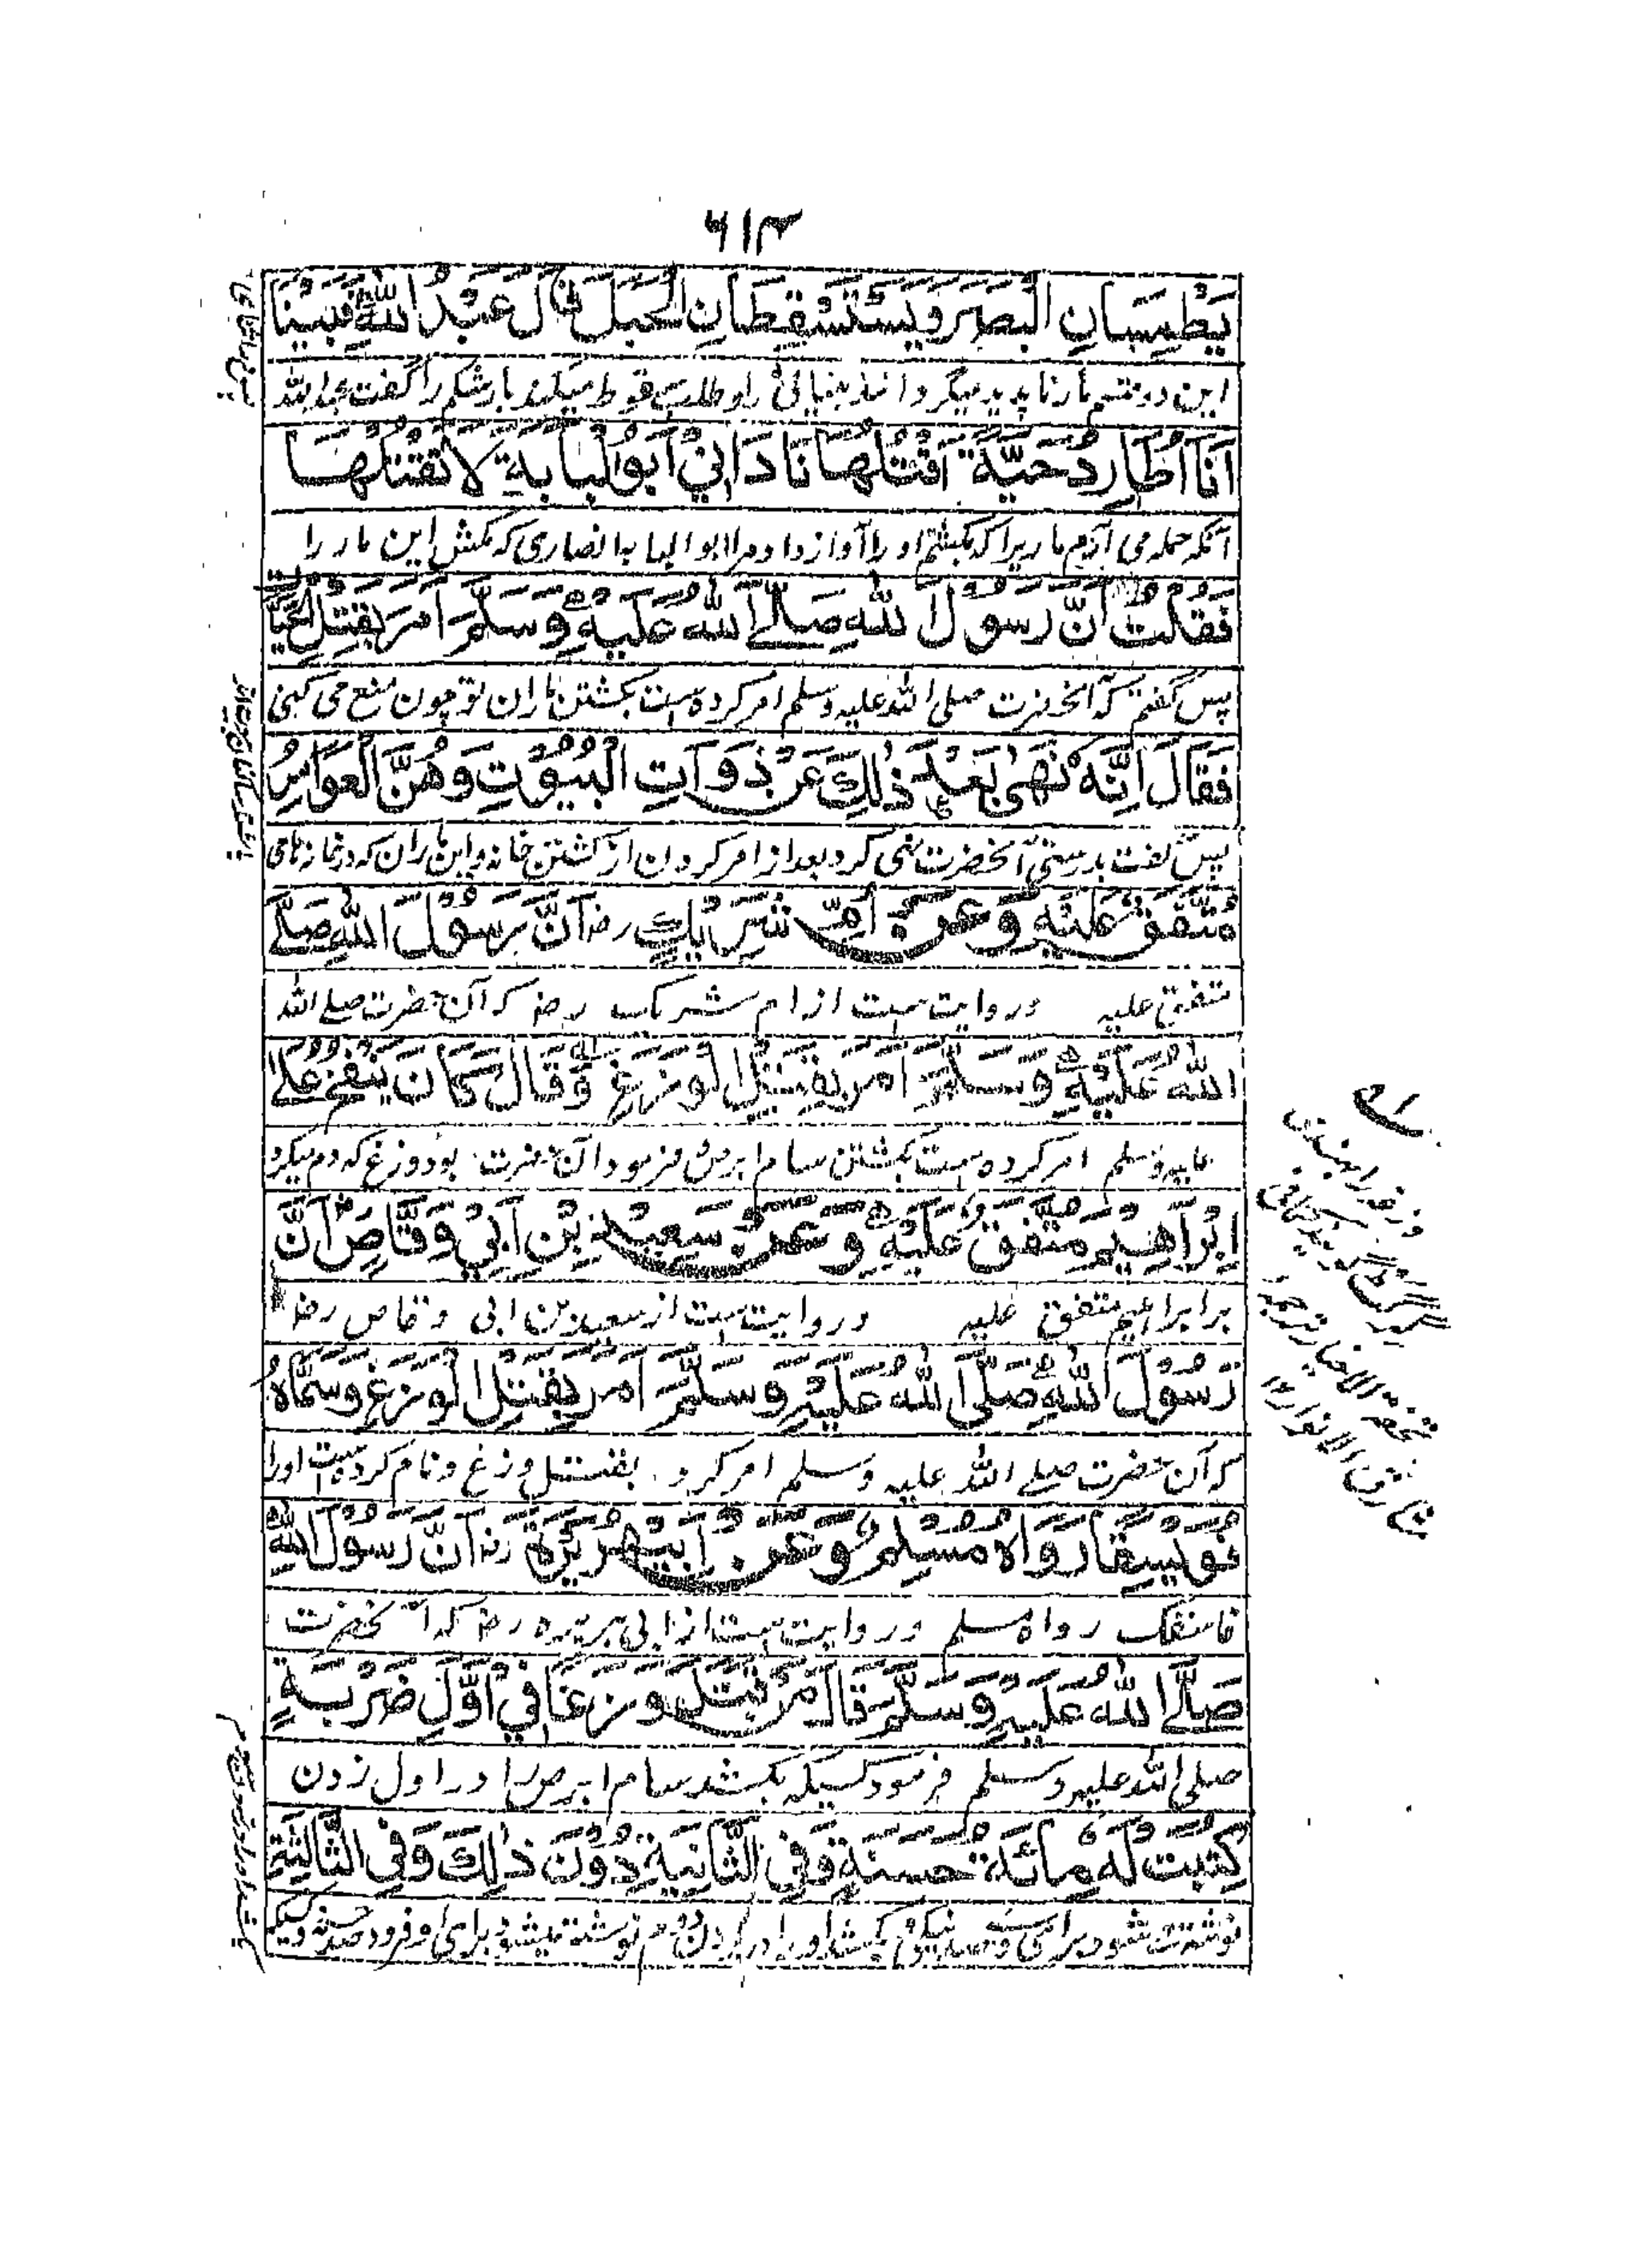 ۶۱۳
يَطْمِسَانِ الْبَصَرَ وَيَسْتَسْقِطَانِ الْحَبَلَ قَالَ عَبْدُ اللهِ فَبَيْنَا
این دو قسم مار ناپدید میگردانند بینائی را و طلب سقوط میکنند بار شکم را گفت عبدالله
اَنَا اُطَارِدُ حَيَّةً اَقْتُلُهَا نَادَانِيْ اَبُو لُبَابَةَ لَا تَقْتُلْهَا
آنکه حمله می آرم ماریرا که بکشم او را آواز داد مرا ابو البابه انصاری که مکش این مار را
فَقُلْتُ اَنَّ رَسُوْلَ اللهِ صَلَّى اللهُ عَلَيْهِ وَسَلَّمَ اَمَرَ بِقَتْلِ الْحَيَّاتِ
پس گفتم که آنحضرت صلی الله علیه وسلم امر کرده است بکشتن ماران تو چون منع می کنی
فَقَالَ اِنَّهٗ نَهٰى بَعْدَ ذٰلِكَ عَنْ ذَوَاتِ الْبُيُوْتِ وَهُنَّ الْعَوَامِرُ
پس گفت بدرستی آنحضرت نهی کرد بعد از امر کردن از کشتن خانه و این ماران که در خانه نامی
مُتَّفَقٌ عَلَيْهِ وَعَنْ اُمِّ شَرِيْكٍ رض اَنَّ رَسُوْلَ اللهِ صَلَّے
متفق علیه وروایت ست از ام شریک رض که آن حضرت صلے الله
اللهُ عَلَيْهِ وَسَلَّمَ اَمَرَ بِقَتْلِ الْوَزَغِ وَقَالَ كَانَ يَنْفُخُ عَلٰى
علیه وسلم امر کرده ست بکشتن سام ابرص و فرمود آن حضرت بود وزغ که دم میکرد
اِبْرَاهِيْمَ مُتَّفَقٌ عَلَيْهِ وَعَنْ سَعِيْدِ بْنِ اَبِيْ وَقَّاصٍ رض اَنَّ
بر ابراهیم متفق علیه وروایت ست از سعید بن ابی وقاص رض
رَسُوْلَ اللهِ صَلَّى اللهُ عَلَيْهِ وَسَلَّمَ اَمَرَ بِقَتْلِ الْوَزَغِ وَسَمَّاهُ
که آن حضرت صلے الله علیه وسلم امر کرد بقتل وزغ و نام کرده ست اورا
فُوَيْسِقًا رَوَاهُ مُسْلِمٌ وَعَنْ اَبِيْ هُرَيْرَةَ رض اَنَّ رَسُوْلَ اللهِ
فاسقک رواه مسلم وروایت ست از ابی هریره رض که آنحضرت
صَلَّے اللهُ عَلَيْهِ وَسَلَّمَ قَالَ مَنْ قَتَلَ وَزَغًا فِيْ اَوَّلِ ضَرْبَةٍ
صلی الله علیه وسلم فرمود کسیکه بکشد سام ابرص را در اول زدن
كُتِبَتْ لَهٗ مِائَةُ حَسَنَةٍ وَفِى الثَّانِيَةِ دُوْنَ ذٰلِكَ وَفِى الثَّالِثَةِ
نوشته شود برای وی صد نیکی بکشد او را در زدن دوم نوشته میشود برای او فرود صد